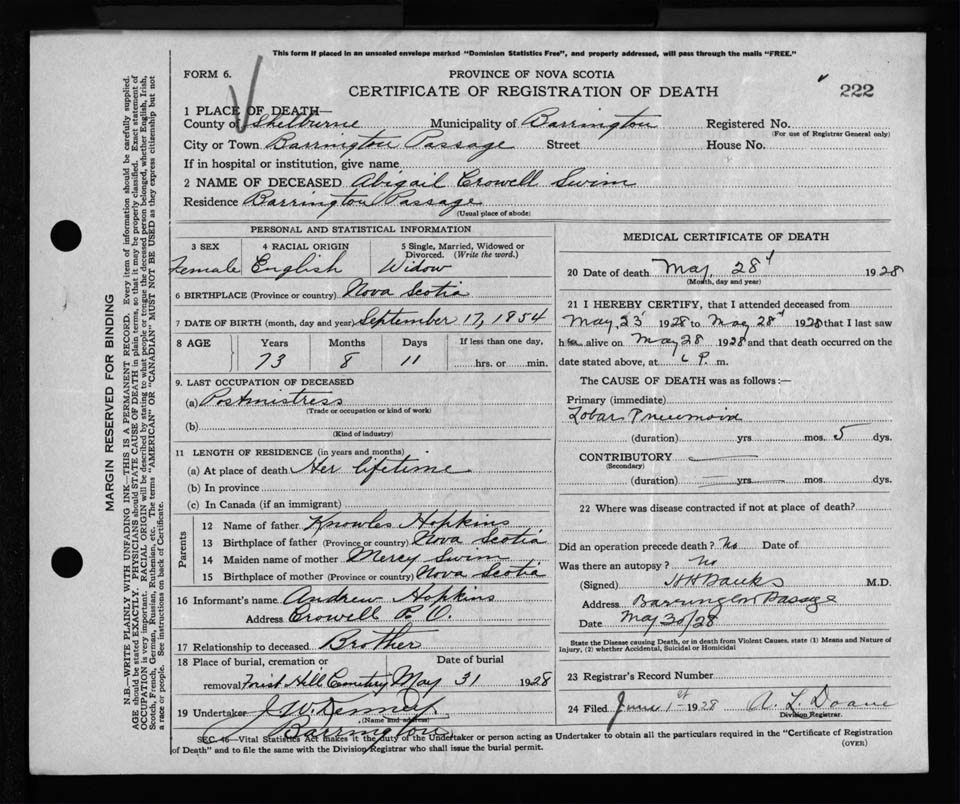 This form if placed in an unsealed envelope marked "Dominion Statistics Free", and properly addressed, will pass through the mails "FREE."
FORM 6.
PROVINCE OF NOVA SCOTIA
CERTIFICATE OF REGISTRATION OF DEATH
222
1 PLACE OF DEATH—
County of Shelburne Municipality of Barrington Registered No.
(For use of Registrar General only)
City or Town Barrington Passage Street House No.
If in hospital or institution, give name
2 NAME OF DECEASED Abigail Crowell Swim
Residence Barrington Passage
(Usual place of abode)
PERSONAL AND STATISTICAL INFORMATION
3 SEX 4 RACIAL ORIGIN 5 Single, Married, Widowed or Divorced. (Write the word.)
Female English Widow
6 BIRTHPLACE (Province or country) Nova Scotia
7 DATE OF BIRTH (month, day and year) September 17, 1854
8 AGE Years Months Days If less than one day,
73 8 11 hrs. or min.
9. LAST OCCUPATION OF DECEASED
(a) Postmistress
(Trade or occupation or kind of work)
(b)
(Kind of industry)
11 LENGTH OF RESIDENCE (in years and months)
(a) At place of death Her lifetime
(b) In province
(c) In Canada (if an immigrant)
Parents
12 Name of father Knowles Hopkins
13 Birthplace of father (Province or country) Nova Scotia
14 Maiden name of mother Mercy Swim
15 Birthplace of mother (Province or country) Nova Scotia
16 Informant's name Andrew Hopkins
Address Crowell P.O.
17 Relationship to deceased Brother
18 Place of burial, cremation or Date of burial
removal Hill Cemetery May 31 1928
19 Undertaker J. W.
(Name and address)
Barrington
MEDICAL CERTIFICATE OF DEATH
20 Date of death May, 28 1928
(Month, day and year)
21 I HEREBY CERTIFY, that I attended deceased from
May 23 1928 to May 28 1928 that I last saw
h alive on May 28 1928 and that death occurred on the
date stated above, at P. m.
The CAUSE OF DEATH was as follows:—
Primary (immediate)
Lobar Pneumonia
(duration) yrs. mos. 5 dys.
CONTRIBUTORY
(Secondary)
(duration) yrs. mos. dys.
22 Where was disease contracted if not at place of death?
Did an operation precede death? No Date of
Was there an autopsy? No
(Signed) H H Banks M.D.
Address Barrington Passage
Date May 30/28
State the Disease causing Death, or in death from Violent Causes, state (1) Means and Nature of
Injury, (2) whether Accidental, Suicidal or Homicidal
23 Registrar's Record Number
24 Filed June 1st 1928 A. L. Doane
Division Registrar.
SEC. 46—Vital Statistics Act makes it the duty of the Undertaker or person acting as Undertaker to obtain all the particulars required in the "Certificate of Registration
of Death" and to file the same with the Division Registrar who shall issue the burial permit.
(OVER)
MARGIN RESERVED FOR BINDING
N.B.—WRITE PLAINLY WITH UNFADING INK—THIS IS A PERMANENT RECORD. Every item of information should be carefully supplied.
AGE should be stated EXACTLY. PHYSICIANS should STATE CAUSE OF DEATH in plain terms, so that it may be properly classified. Exact statement of
OCCUPATION is very important. RACIAL ORIGIN will be described by stating to what people or tongue the deceased person belonged, whether English, Irish,
Scotch, French, German, Russian, Ruthenian, etc. The terms "AMERICAN" OR "CANADIAN" MUST NOT BE USED as they express citizenship but not
a race or people. See instructions on back of Certificate.